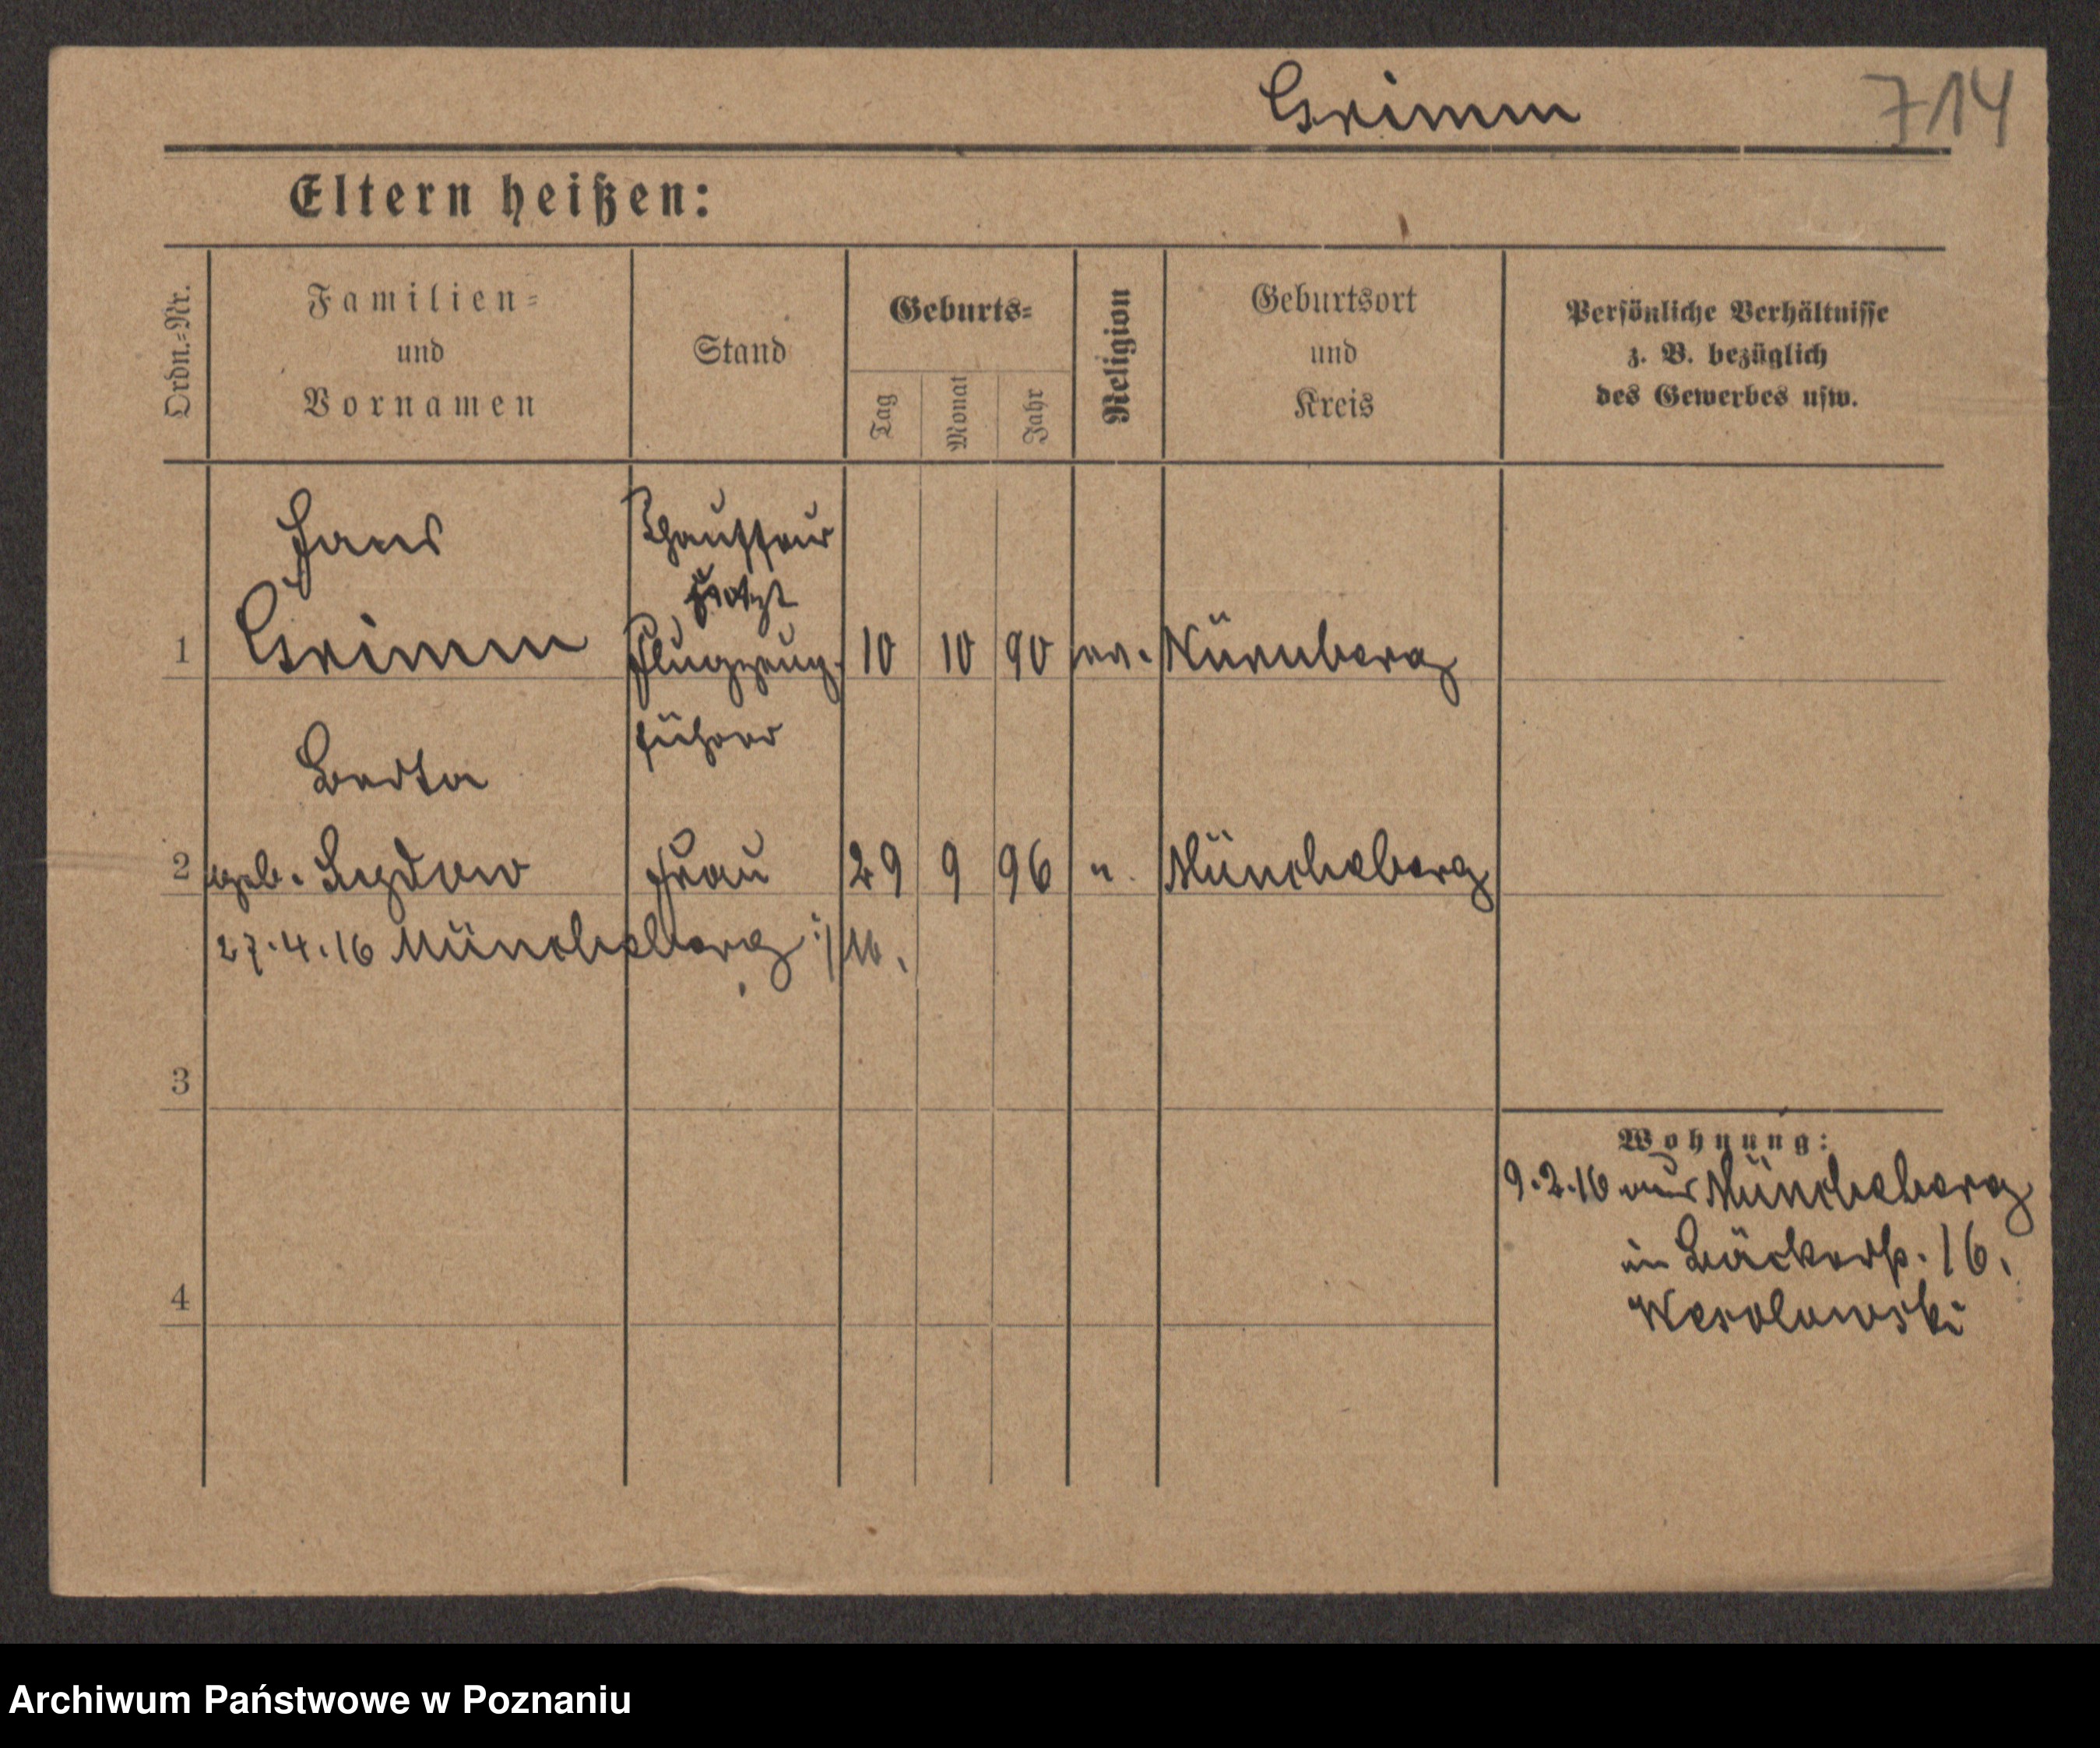 Grimm 714
Eltern heißen:
Ordn.-Nr.
Familien-
und
Vornamen
Stand
Geburts-
Tag
Monat
Jahr
Religion
Geburtsort
und
Kreis
Persönliche Verhältnisse
z. B. bezüglich
des Gewerbes usw.
Hans
Chauffeur
jetzt
1 Grimm Flugzeug- 10 10 90 ev. Nürnberg
führer
Berta
2 geb. Frau 29 9 96 " Müncheberg
27.4.16 Müncheberg i/M.
3
Wohnung:
9.2.16 aus Müncheberg
in Bäckerstr. 16.
4
Wesolowski
Archiwum Państwowe w Poznaniu